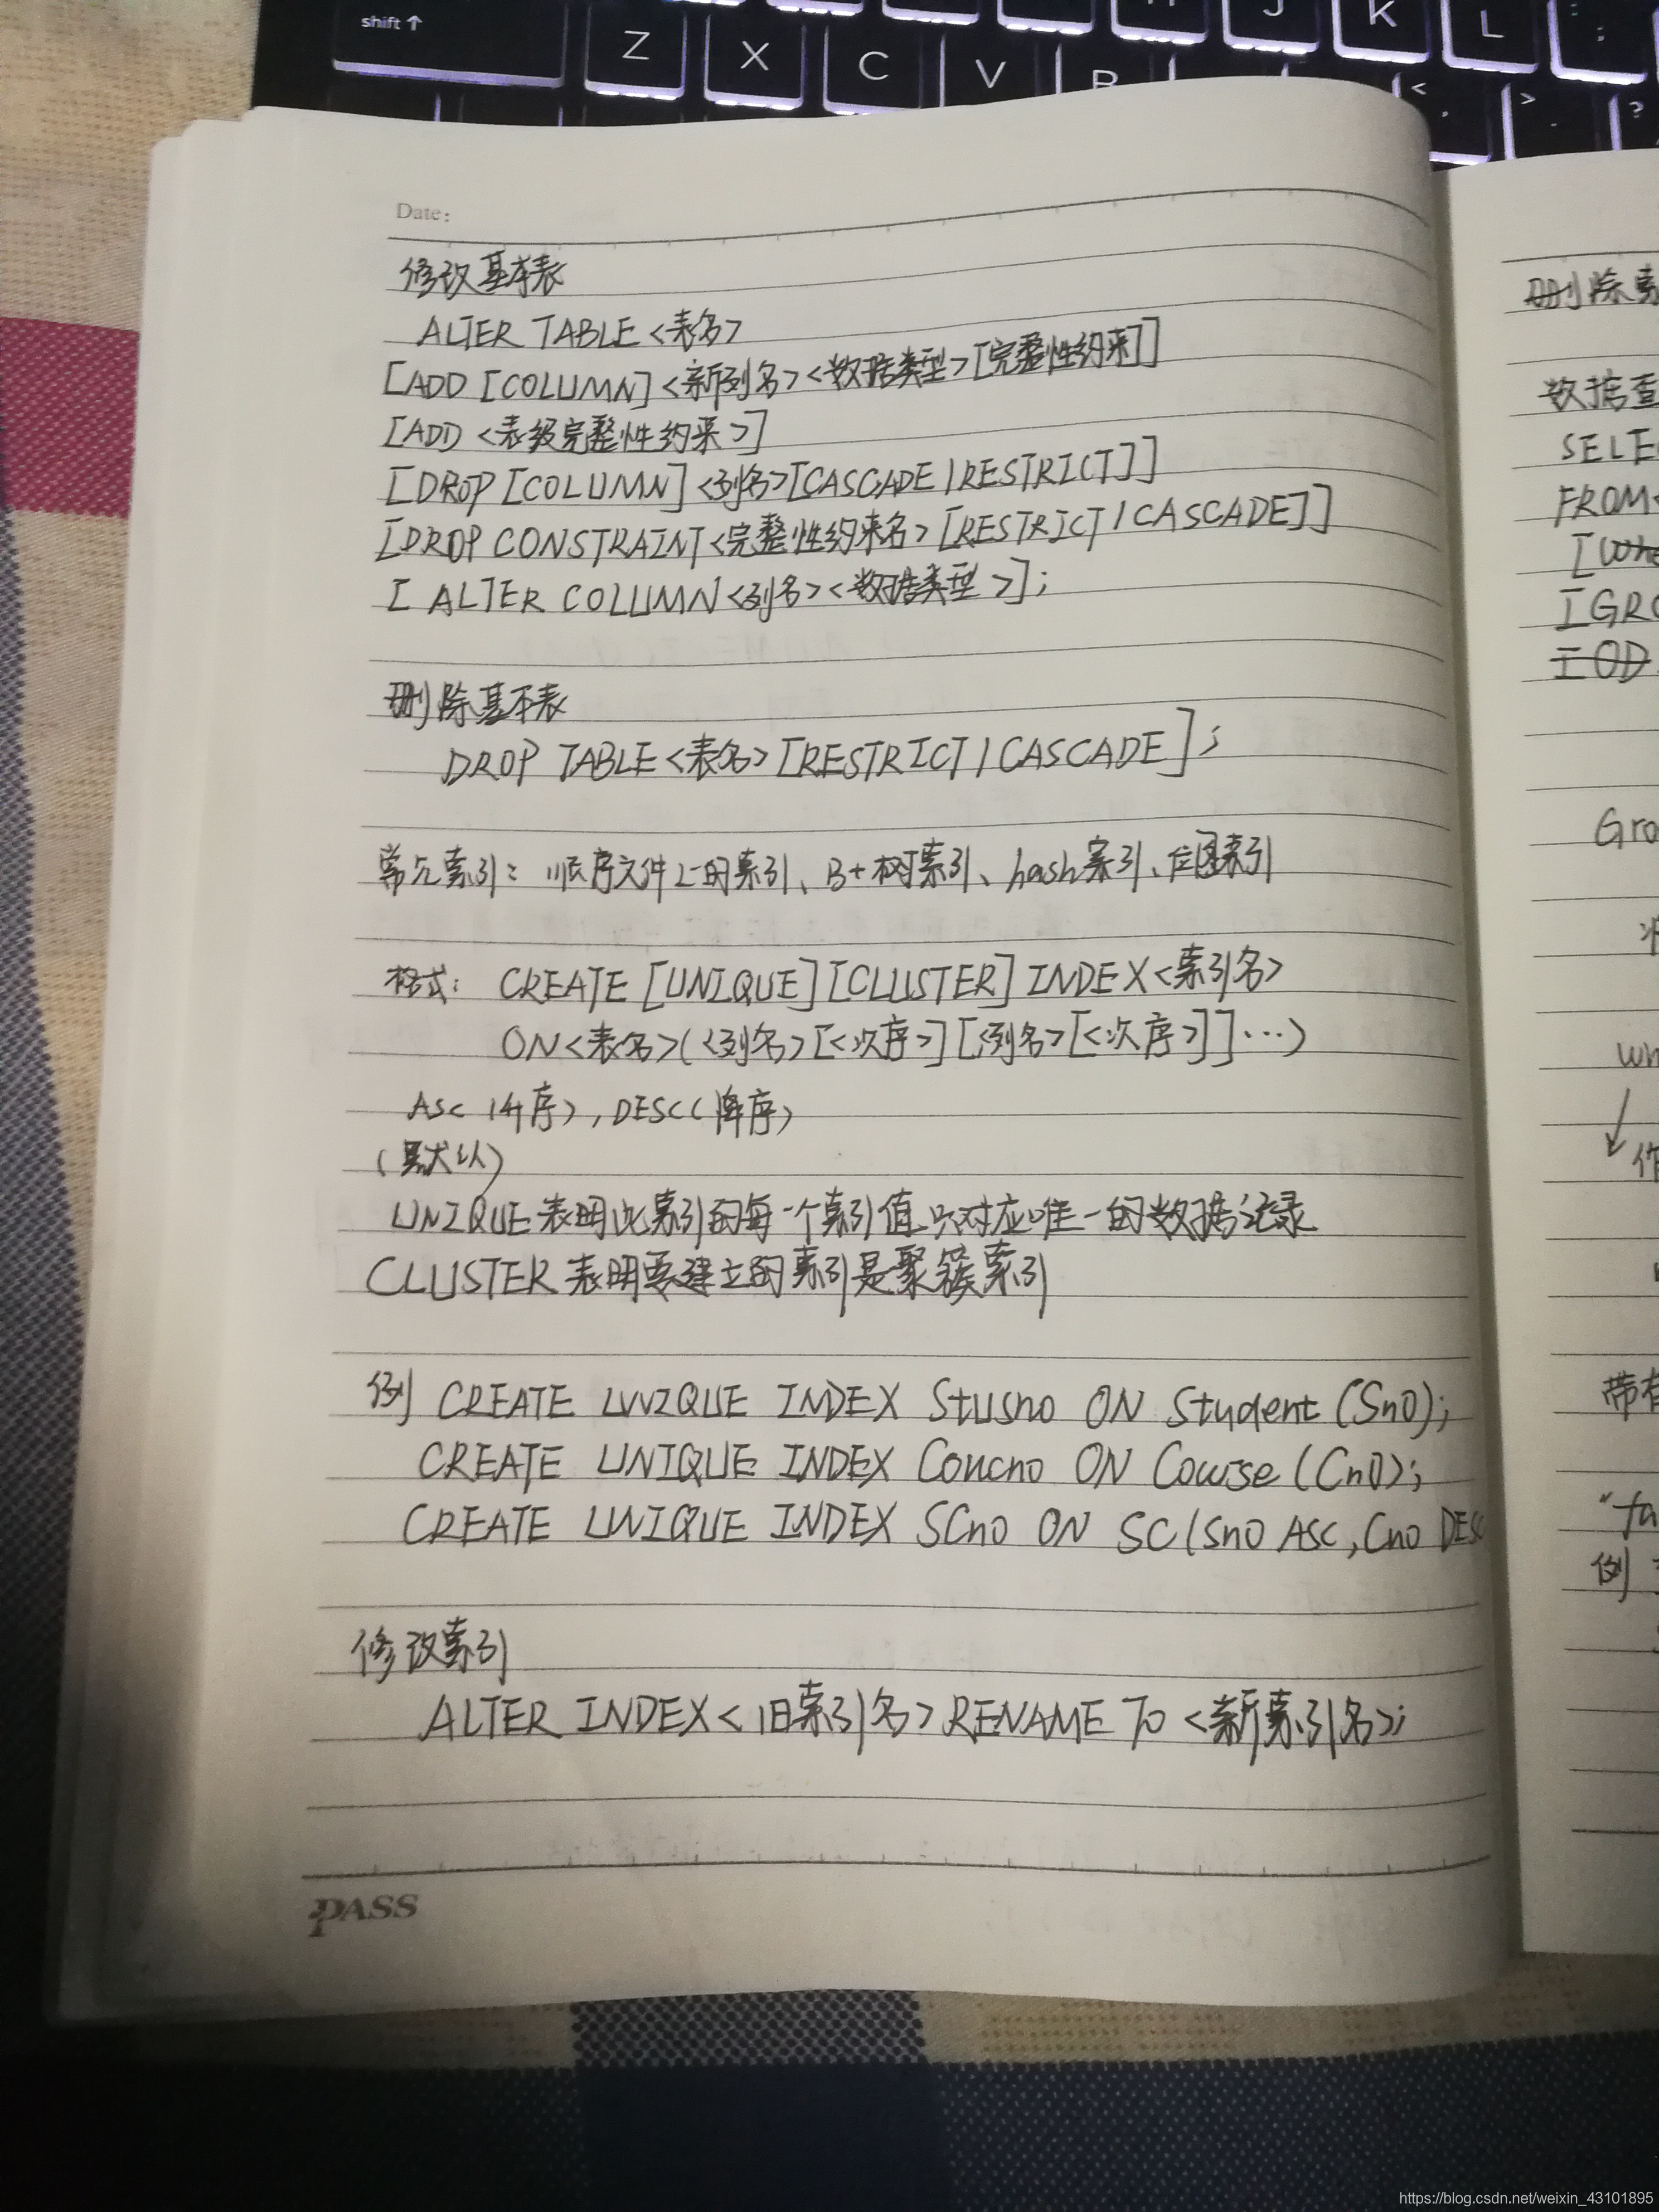 shift ↑
Z X C V B J K L ; < , > . ?
Date:
修改基本表
ALTER TABLE <表名>
[ADD [COLUMN] <新列名> <数据类型> [完整性约束]]
[ADD <表级完整性约束>]
[DROP [COLUMN] <列名> [CASCADE | RESTRICT]]
[DROP CONSTRAINT <完整性约束名> [RESTRICT / CASCADE]]
[ ALTER COLUMN <列名> <数据类型>];
删除基本表
DROP TABLE <表名> [RESTRICT / CASCADE];
常见索引: 顺序文件上的索引、B+树索引、hash索引、位图索引
格式: CREATE [UNIQUE] [CLUSTER] INDEX <索引名>
ON <表名> (<列名> [<次序>] [<列名> [<次序>]] ...)
ASC (升序), DESC (降序)
(默认)
UNIQUE 表明此索引的每一个索引值只对应唯一的数据记录
CLUSTER 表明要建立的索引是聚簇索引
例 CREATE UNIQUE INDEX Stusno ON Student (Sno);
CREATE UNIQUE INDEX Coucno ON Course (Cno);
CREATE UNIQUE INDEX SCno ON SC (Sno ASC, Cno DESC
修改索引
ALTER INDEX <旧索引名> RENAME TO <新索引名>;
PASS
删除索
数据查
SELE
FROM<
[Whe
[GRO
Gro
wh
作
带有
"fa
例
https://blog.csdn.net/weixin_43101895